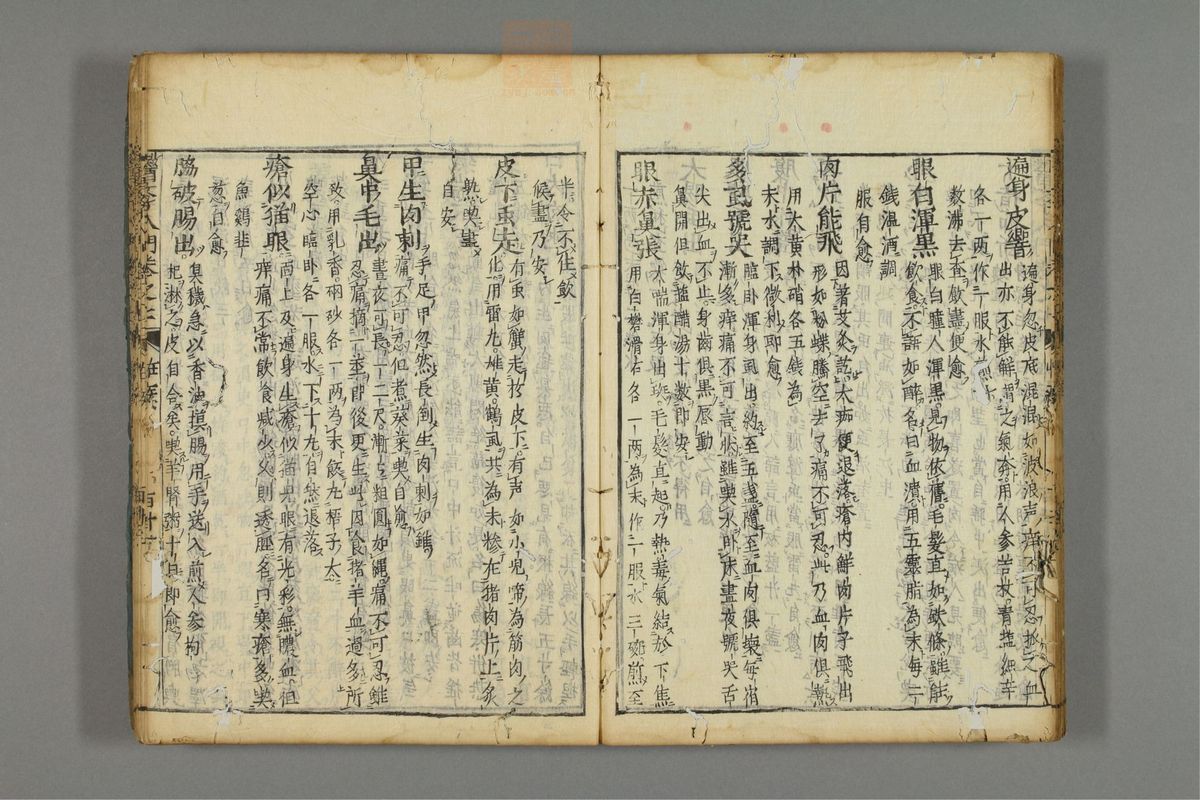 遍身皮響 遍身忽皮底混混如波浪声痒不可忍抓之血
出亦不能解謂之氣奔用人參苦杖青盐細辛
各一両作一服水煎
数沸去査飲盡便愈
眼白渾黒 眼白瞳人渾黒見物依舊毛髪直如鉄條雖能
飲食不語如醉名曰血潰用五霊脂為末每二
錢温酒調
服自愈
肉片能飛 因著艾灸訖火痂便退落瘡内鮮肉片子飛出
形如蝴蝶騰空去了痛不可忍此乃血肉俱熱
用大黄朴硝各五銭為
末水調下微利即愈
多虱號哭 臨卧渾身虱出約至五盞隨至血肉俱壊每宿
漸多痒痛不可言状雖喫水卧床晝夜號哭舌
尖出血不止身齒俱黒唇動
鼻開但飲塩醋湯十数即安
眼赤鼻張 大喘渾身出斑毛髪直起乃熱毒氣結於下焦
用白礬滑石各一両為末作一服水三碗煎至
半令不住飲
候盡乃安
皮下虫走 有虫如蟹走於皮下有声如小児啼為筋肉之
化用雷丸雄黄各一両共為末糝在猪肉片上炙
熟喫盡
自安
甲生肉刺 手足甲忽然長倒生肉刺如錐
痛不可忍但煮葵菜喫自愈
鼻中毛出 晝夜可長一二尺漸々粗圓如縄痛不可忍雖
忍痛摘一茎即後更生此因食猪羊血過多所
致用乳香硇砂各一両為末飯丸梧子大
空心臨卧各一服水下十丸自然退落
瘡似猫眼 面上及遍身生瘡似猫児眼有光彩無膿血但
痒痛不常飲食减少久則透脛名曰寒瘡多喫
魚鶏韭
葱自愈
脇破腸出 臭穢急以香油摸腸用手送入煎人參枸
杞淋之皮自合矣喫羊腎粥十日即愈